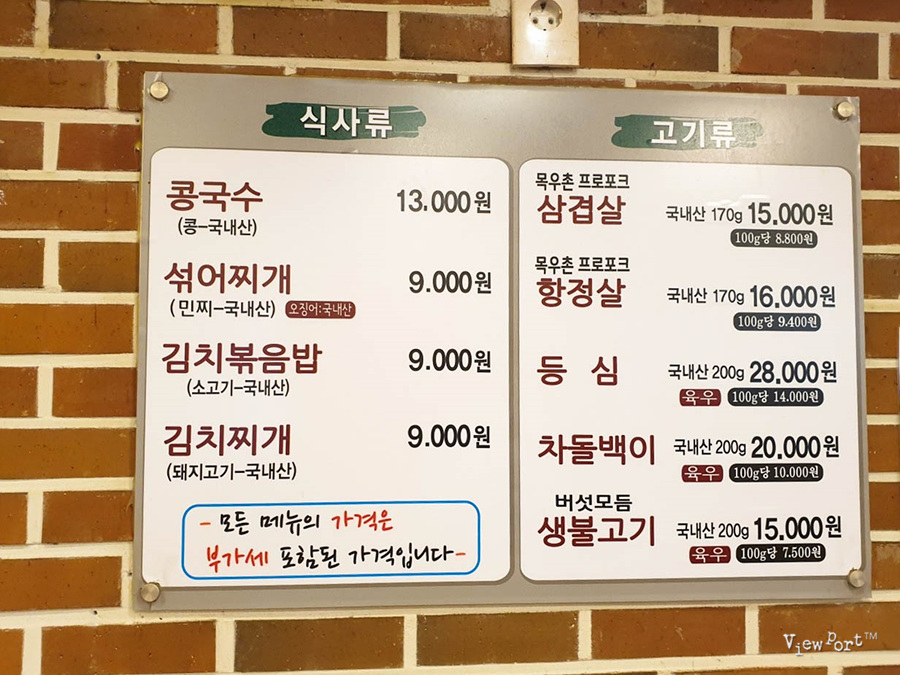 식사류
콩국수 13.000원
(콩-국내산)
섞어찌개 9.000원
(민찌-국내산) 오징어:국내산
김치볶음밥 9.000원
(소고기-국내산)
김치찌개 9.000원
(돼지고기-국내산)
- 모든 메뉴의 가격은
부가세 포함된 가격입니다-
고기류
목우촌 프로포크
삼겹살 국내산 170g 15.000원
100g당 8.800원
목우촌 프로포크
항정살 국내산 170g 16.000원
100g당 9.400원
등 심 국내산 200g 28.000원
육우 100g당 14.000원
차돌백이 국내산 200g 20.000원
육우 100g당 10.000원
버섯모듬
생불고기 국내산 200g 15.000원
육우 100g당 7.500원
ViewPort™